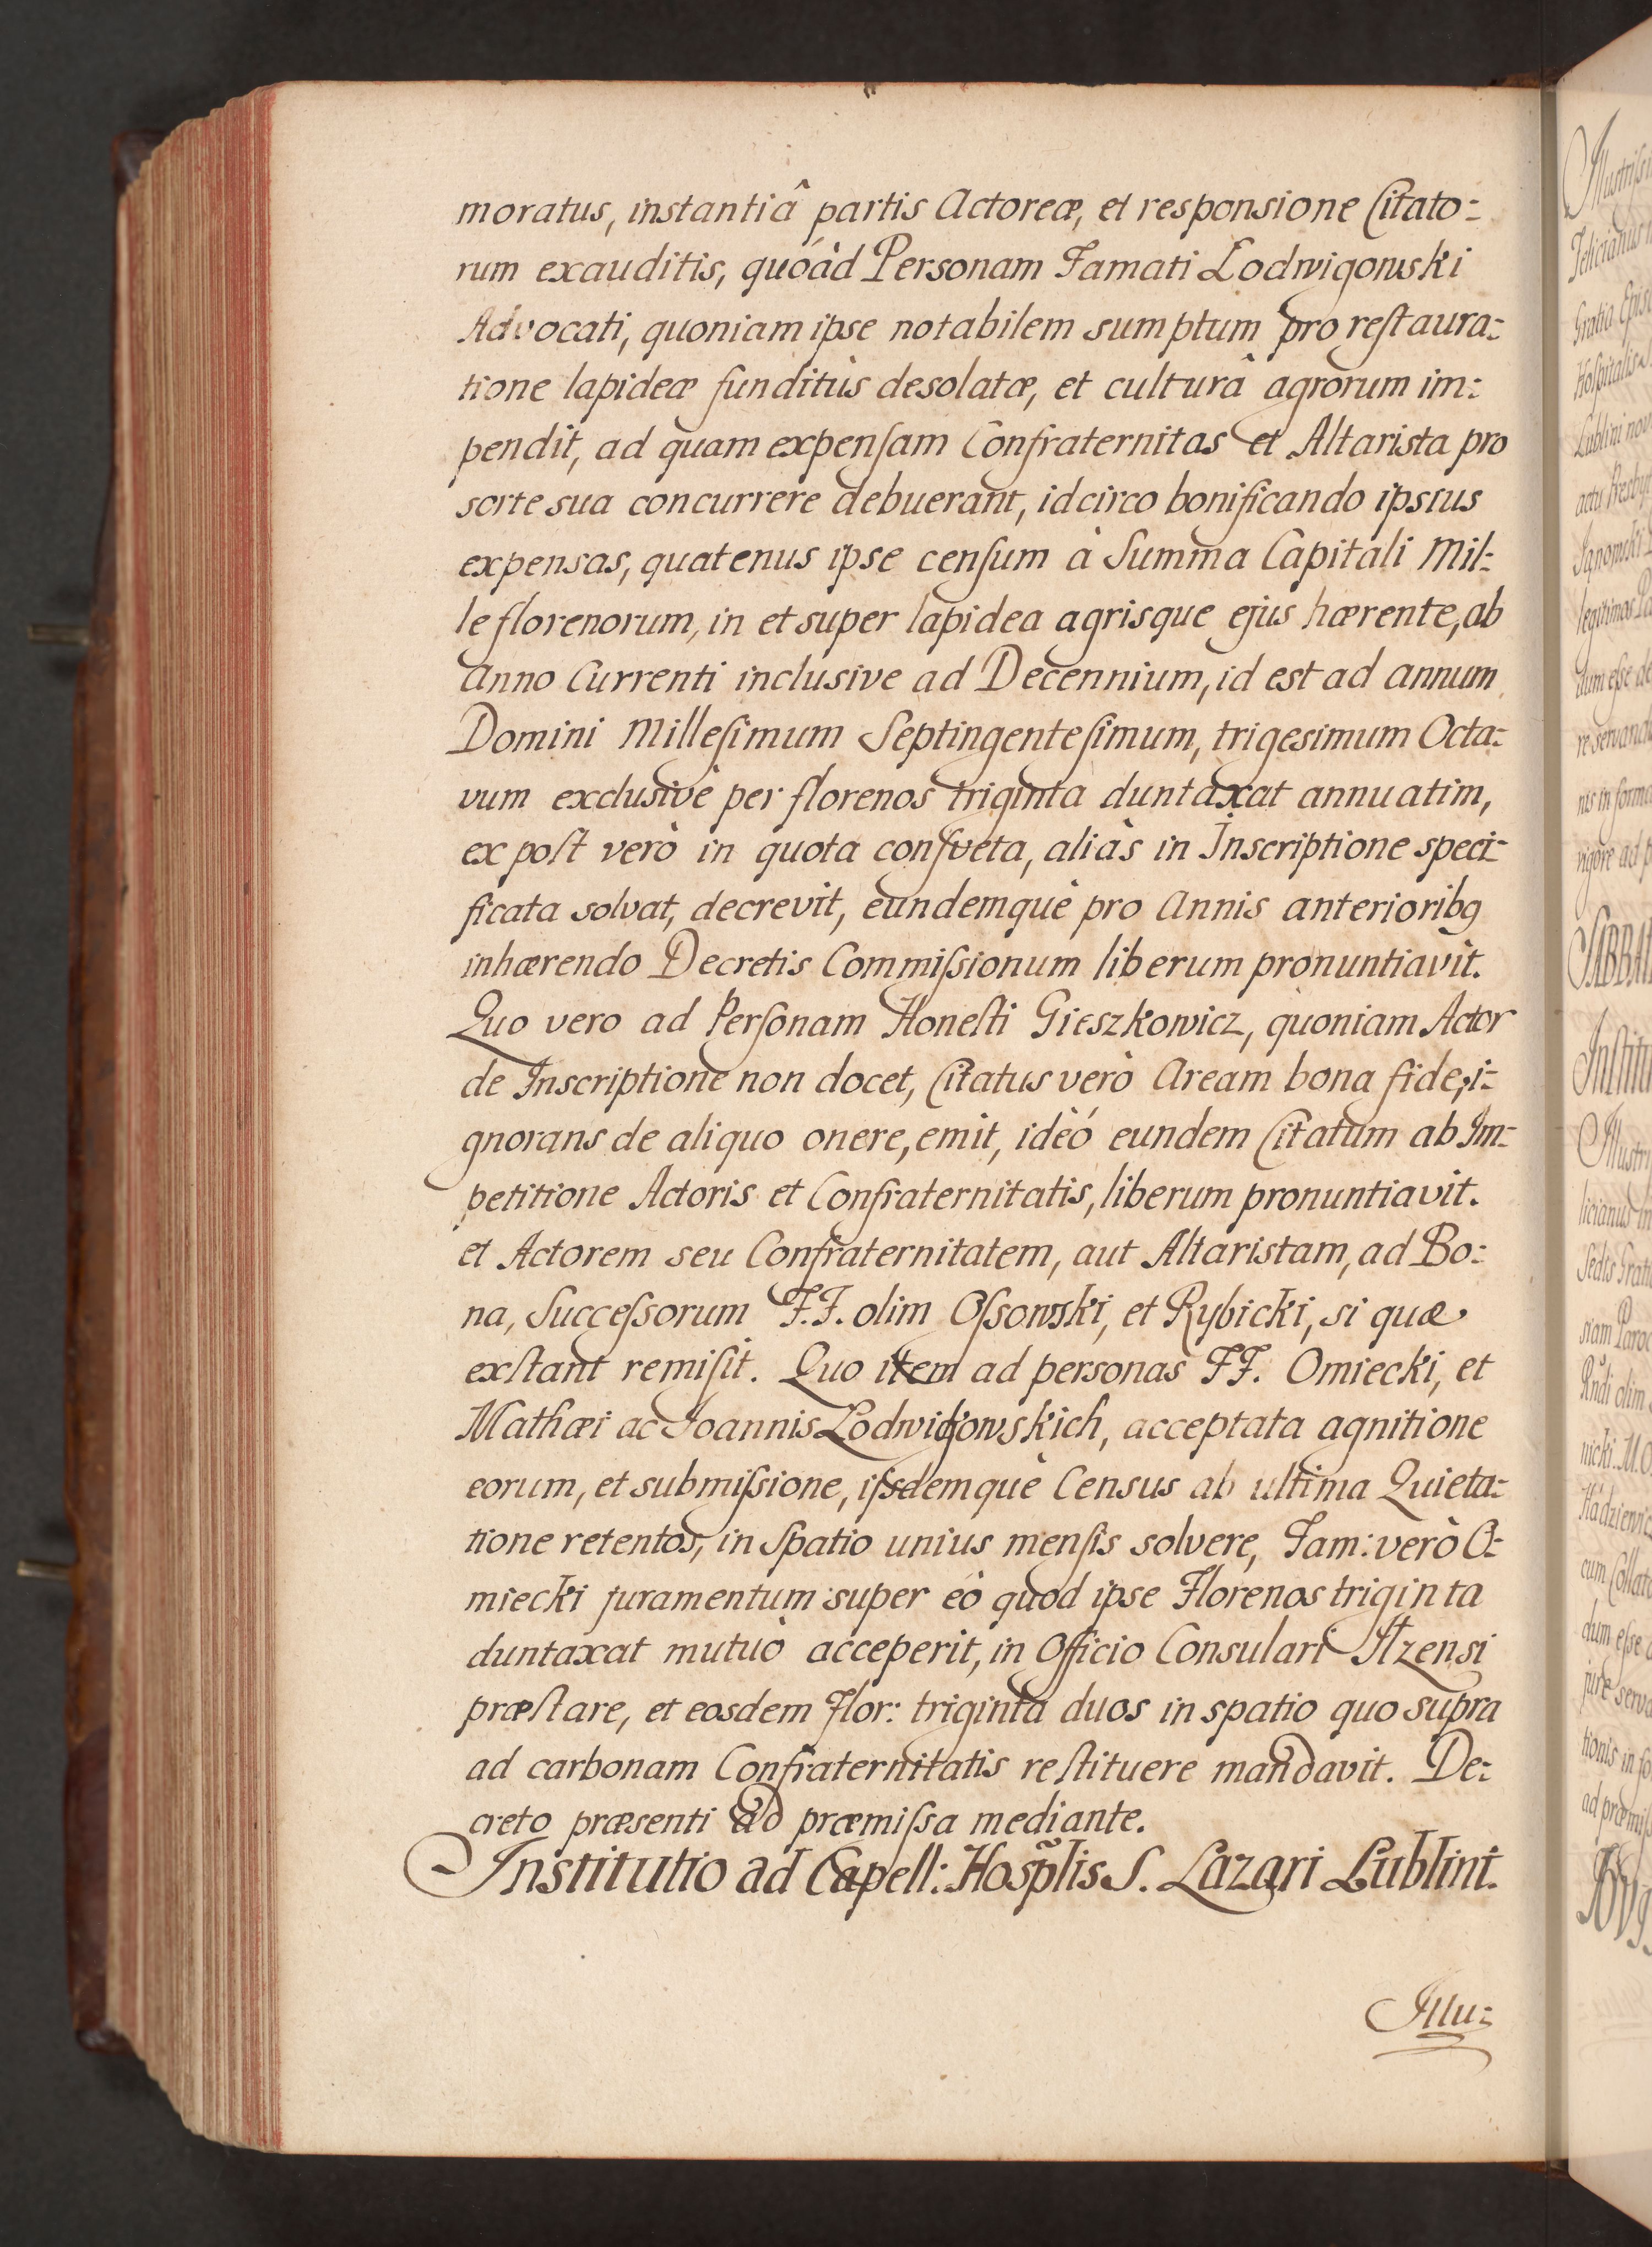 moratus, instantiâ partis Actoreæ, et responsione Citato:
rum exauditis, quóàd Personam Famati Lodwigowski
Advocati, quoniam ipse notabilem sumptum pro reſtaura:
tione lapideæ funditùs desolatæ, et culturâ agrorum im:
pendit, ad quam expenſam Confraternitas et Altarista pro
sorte sua concurrere debuerant, idcirco bonificando ipsius
expensas, quatenus ipse cenſum à Summa Capitali Mil:
le florenorum, in et super lapidea agrisque ejus hærente, ab
Anno Currenti inclusive ad Decennium, id est ad annum
Domini Milleſimum Septingenteſimum, trigesimum Octa:
vum exclusivè per florenos triginta duntaxat annuatim,
ex poſt verò in quota conſveta, aliàs in Inscriptione speci:
ficata solvat, decrevit, eundemquè pro Annis anterioribq
inhærendo Decretis Commiſsionum liberum pronuntiavit.
Quo vero ad Perſonam Honeſti Gieszkowicz, quoniam Actor
de Inscriptione non docet, Citatus verò Aream bona fide, i:
gnorans de aliquo onere, emit, idèó eundem Citatum ab Im:
petitione Actoris et Confraternitatis, liberum pronuntiavit.
et Actorem seu Confraternitatem, aut Altaristam, ad Bo:
na, Succeſsorum F.F. olim Oſsowski, et Rybicki, si quæ
exſtant remiſit. Quo item ad personas FF. Omiecki, et
Mathæi ac Joannis Lodwigowskich, acceptata agnitione
eorum, et submiſsione, iisdemquè Census ab ultima Quieta:
tione retentos, in Spatio unius menſis solvere, Fam: verò O:
miecki juramentum super eò quod ipse Florenos triginta
duntaxat mutuò acceperit, in Officio Consulari Ilzensi
præſtare, et eosdem Flor: triginta duos in spatio quo supra
ad carbonam Confraternitatis reſtituere mandavit. De:
creto præsenti ad præmiſsa mediante.
Institutio ad Capell: Hosp̃lis S. Lazari Lublini.
Illu: